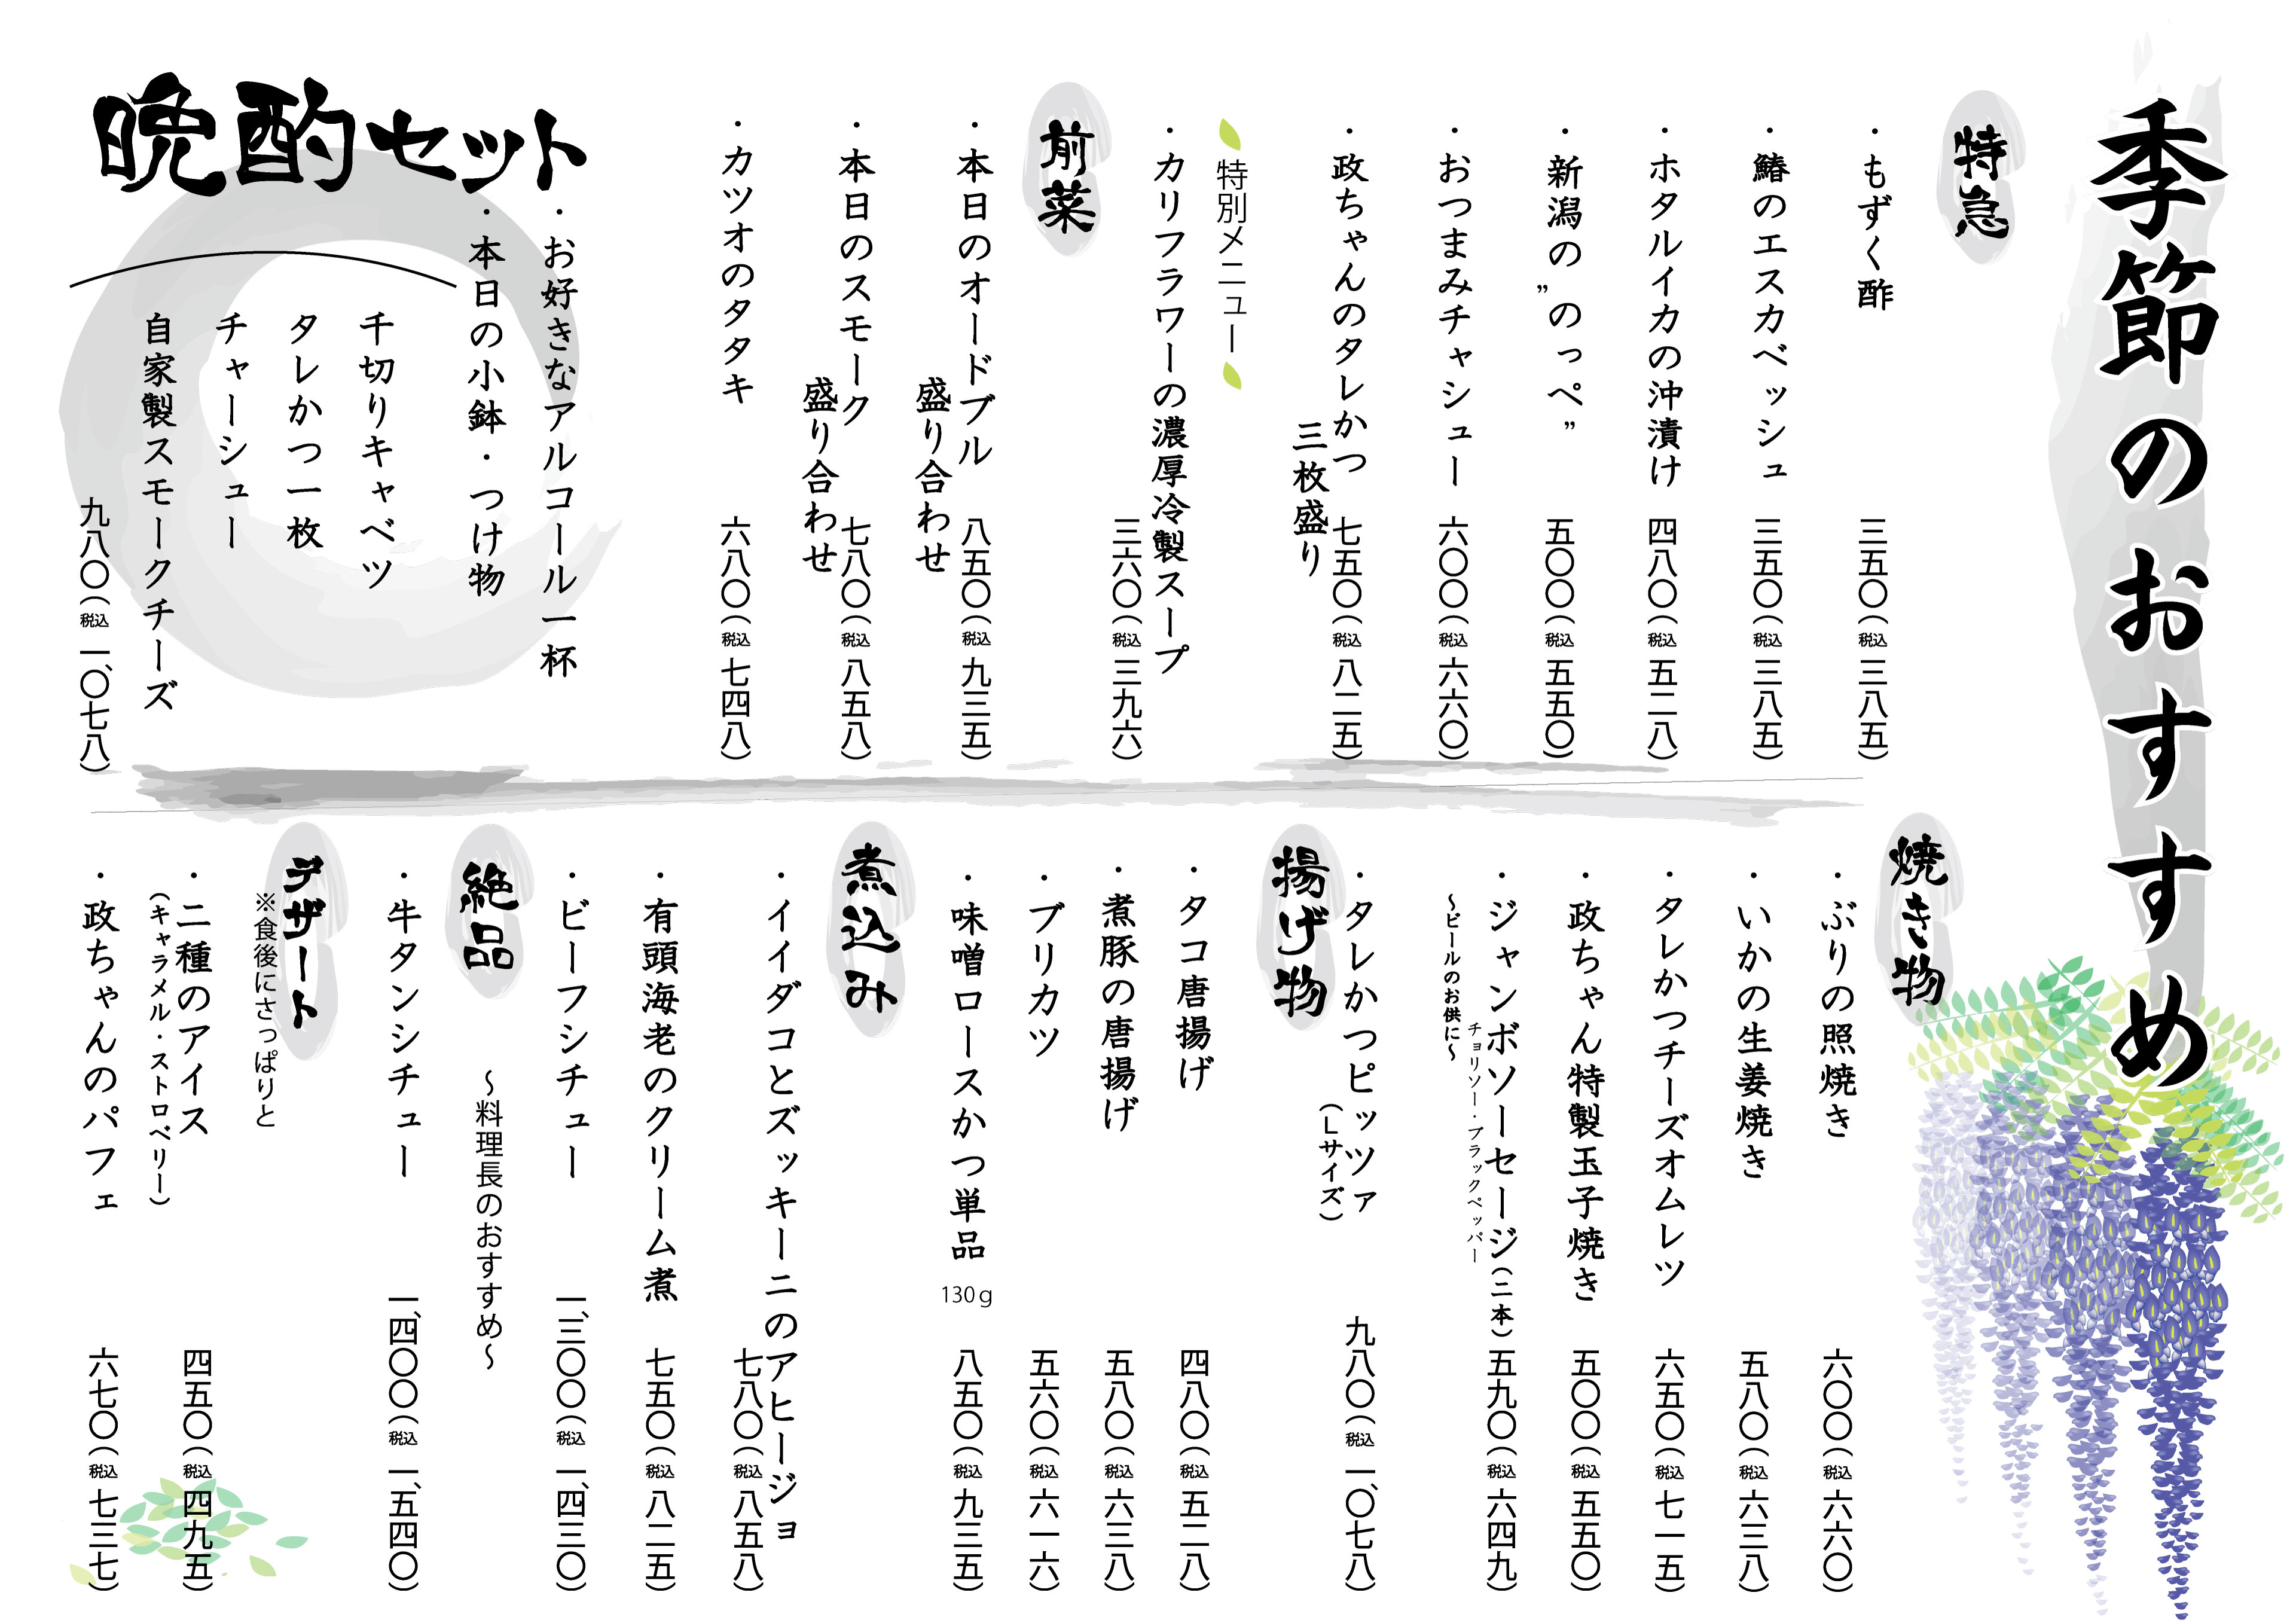 季節のおすすめ
特急
・もずく酢 三五〇（税込 三八五）
・鰆のエスカベッシュ 三五〇（税込 三八五）
・ホタルイカの沖漬け 四八〇（税込 五二八）
・新潟の”のっぺ” 五〇〇（税込 五五〇）
・おつまみチャシュー 六〇〇（税込 六六〇）
・政ちゃんのタレかつ 七五〇（税込 八二五）
三枚盛り
特別メニュー
・カリフラワーの濃厚冷製スープ
三六〇（税込 三九六）
前菜
・本日のオードブル 八五〇（税込 九三五）
盛り合わせ
・本日のスモーク 七八〇（税込 八五八）
盛り合わせ
・カツオのタタキ 六八〇（税込 七四八）
晩酌セット
・お好きなアルコール一杯
・本日の小鉢・つけ物
千切りキャベツ
タレかつ一枚
チャーシュー
自家製スモークチーズ
九八〇（税込 一、〇七八）
焼き物
・ぶりの照焼き 六〇〇（税込 六六〇）
・いかの生姜焼き 五八〇（税込 六三八）
・タレかつチーズオムレツ 六五〇（税込 七一五）
・政ちゃん特製玉子焼き 五〇〇（税込 五五〇）
・ジャンボソーセージ（二本） 五九〇（税込 六四九）
チョリソー・ブラックペッパー
～ビールのお供に～
・タレかつピッツァ 九八〇（税込 一、〇七八）
（Lサイズ）
揚げ物
・タコ唐揚げ 四八〇（税込 五二八）
・煮豚の唐揚げ 五八〇（税込 六三八）
・ブリカツ 五六〇（税込 六一六）
・味噌ロースかつ単品 130g 八五〇（税込 九三五）
煮込み
・イイダコとズッキーニのアヒージョ
七八〇（税込 八五八）
・有頭海老のクリーム煮 七五〇（税込 八二五）
・ビーフシチュー 一、三〇〇（税込 一、四三〇）
絶品
～料理長のおすすめ～
・牛タンシチュー 一、四〇〇（税込 一、五四〇）
デザート
※食後にさっぱりと
・二種のアイス 四五〇（税込 四九五）
（キャラメル・ストロベリー）
・政ちゃんのパフェ 六七〇（税込 七三七）